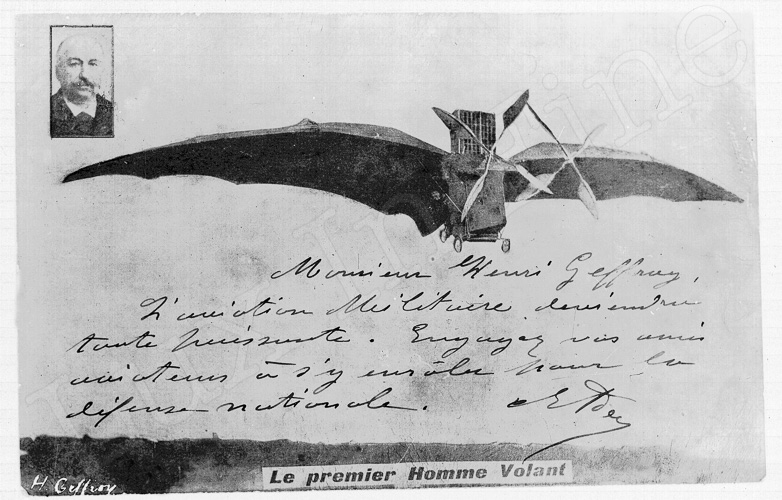 Monsieur Henri Geffroy,
L'aviation Militaire deviendra
toute puissante. Engagez vos amis
aviateurs à s'y enrôler pour la
défense nationale.
Le premier Homme Volant
H. Geffroy